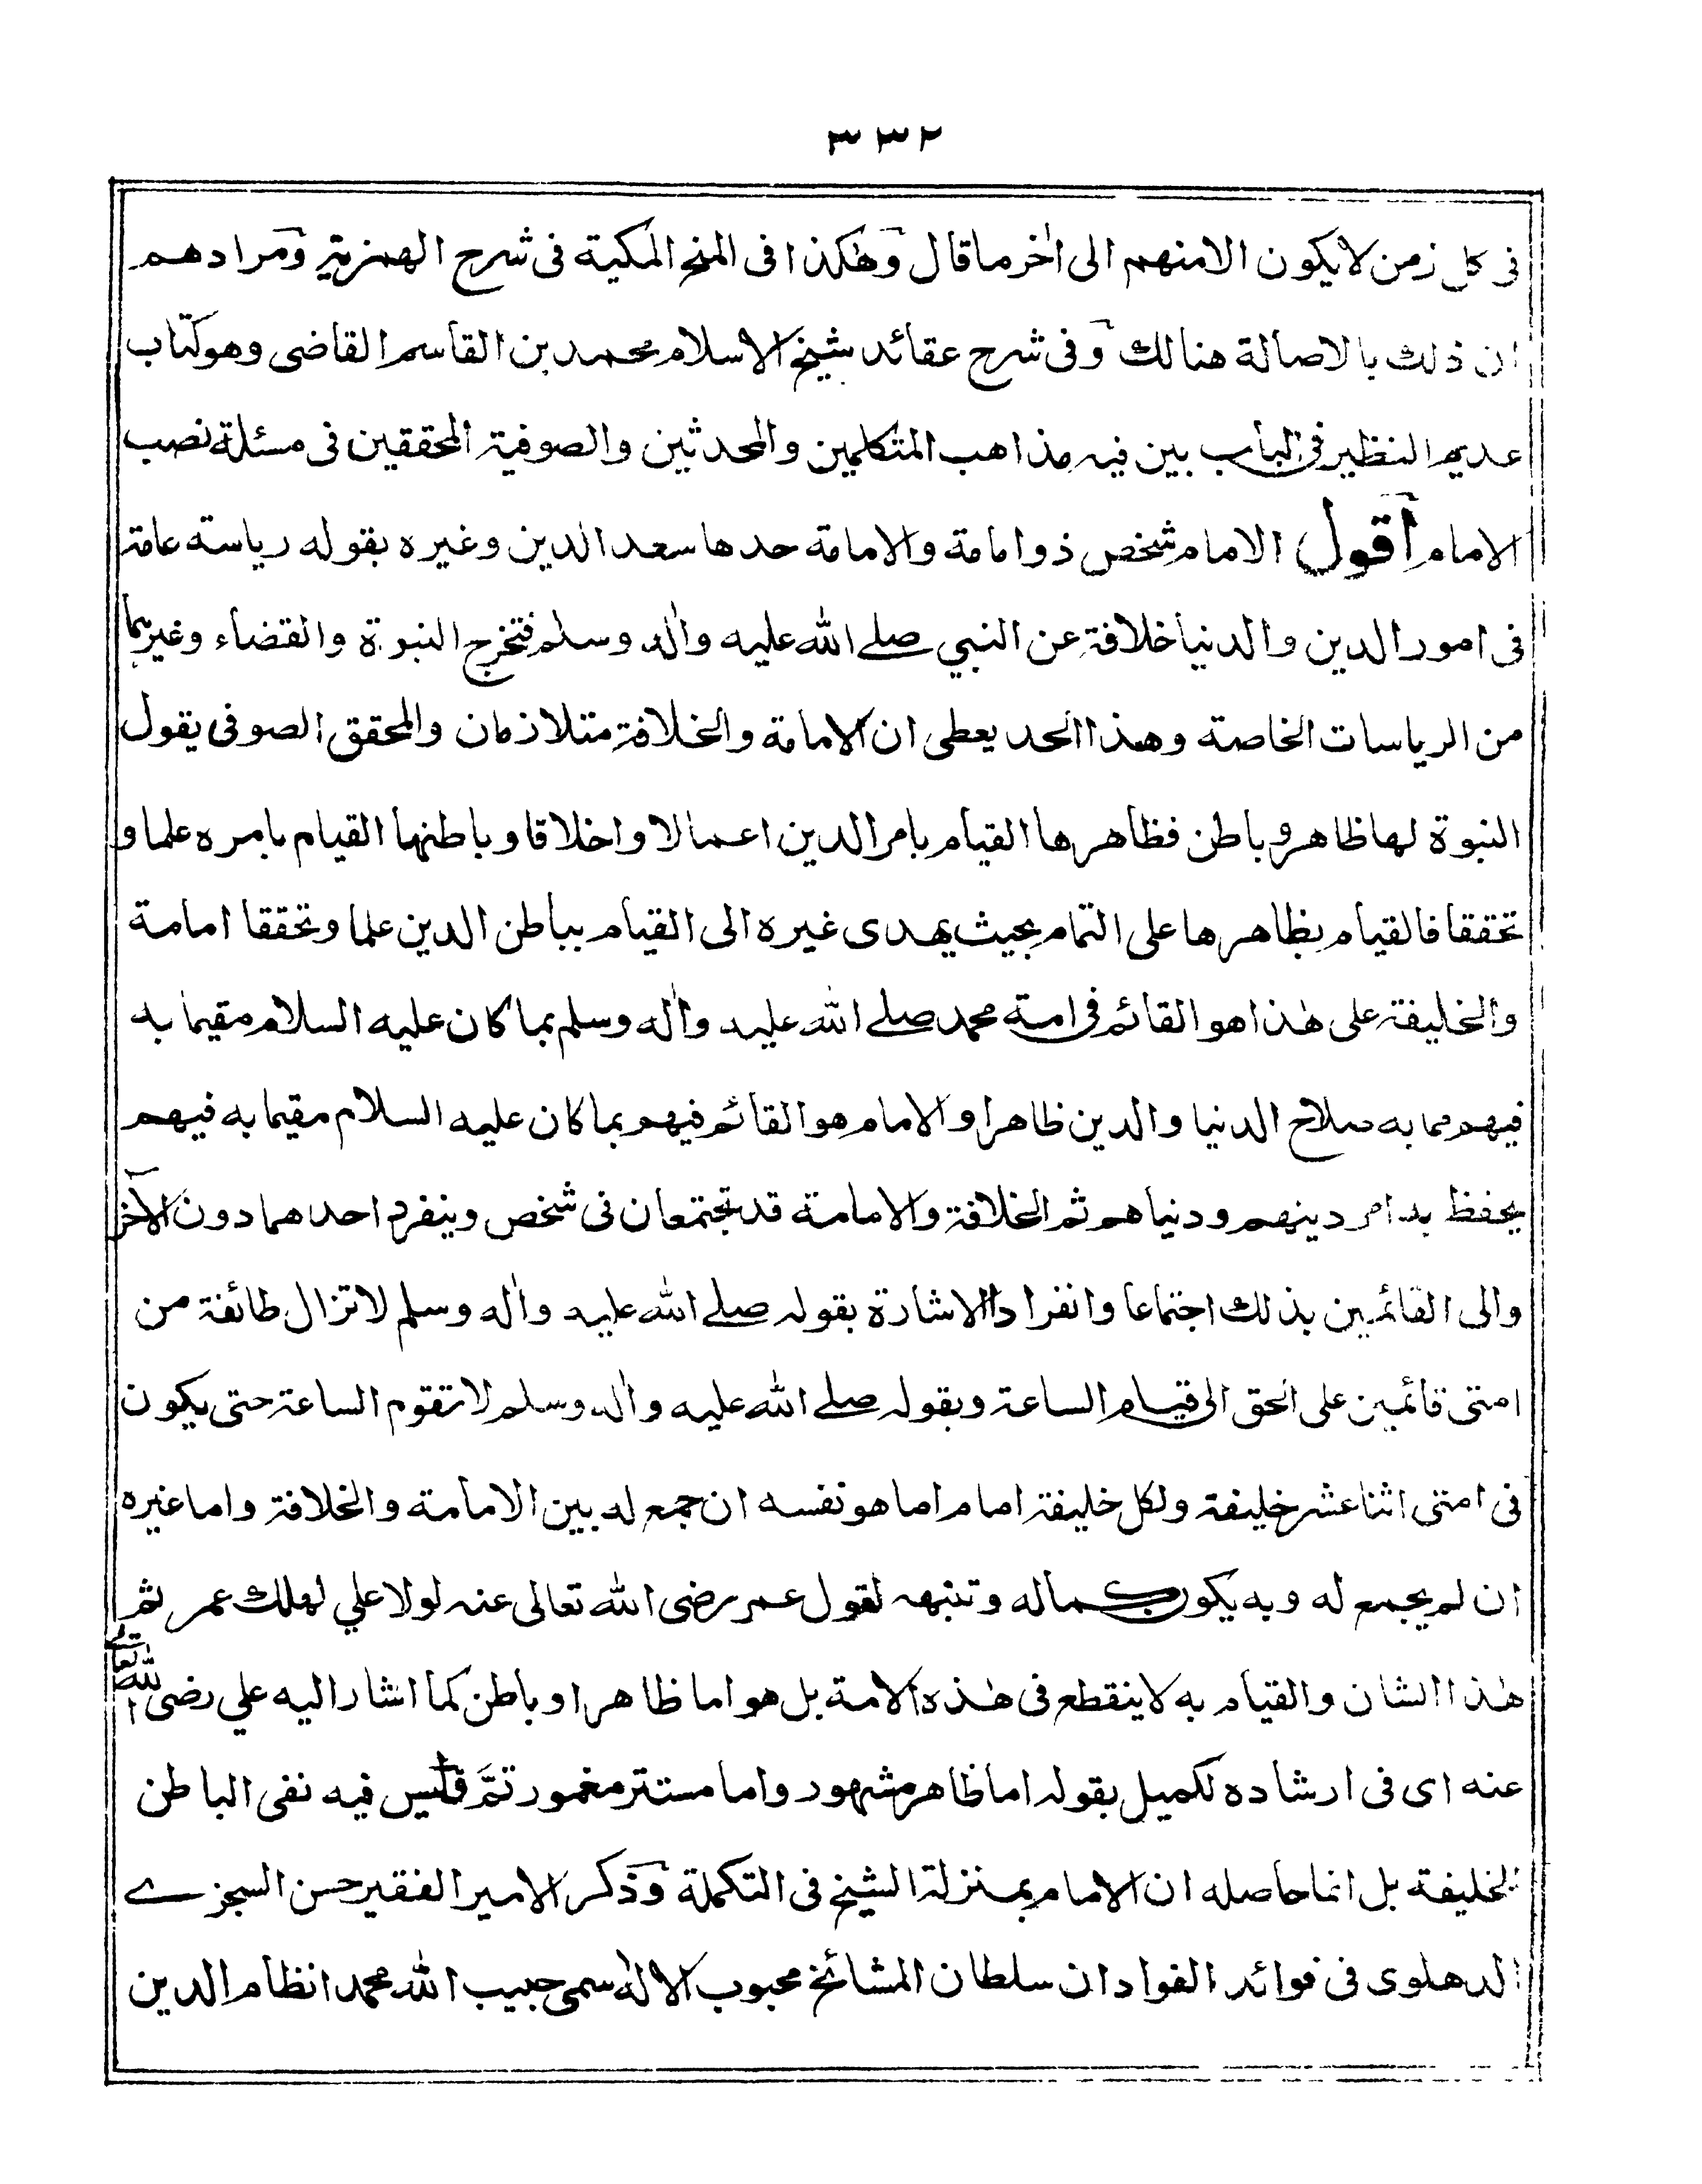 ٣٣٢
فى كل زمن لايكون الامنهم الى اٰخر ماقال وهٰكذا فى المنح المكية فى شرح الهمزية ومرادهم
ان ذلك بالاصالة هنالك وفى شرح عقائد شيخ الاسلام محمد بن القاسم القاضى وهوكتاب
عديم النظير فى الباب بين فيه مذاهب المتكلمين والمحدثين والصوفية المحققين فى مسئلة نصب
الامام اقول الامام شخص ذو امامة والامامة حدها سعد الدين وغيره بقوله رياسة عامة
فى امور الدين والدنيا خلافة عن النبي صلے الله عليه واٰله وسلم فتخرج النبوة والقضاء وغيرهما
من الرياسات الخاصة وهذا الحد يعطى ان الامامة والخلافة متلازمان والمحقق الصوفى يقول
النبوة لها ظاهر وباطن فظاهرها القيام بامر الدين اعمالا واخلاقا وباطنها القيام بامره علما و
تحققا فالقيام بظاهرها على التمام بحيث يهدى غيره الى القيام بباطن الدين علما وتحققا امامة
والخليفة على هٰذا هو القائم فى امة محمد صلے الله عليه واٰله وسلم بما كان عليه السلام مقيما به
فيهم مما به صلاح الدنيا والدين ظاهرا والامام هو القائم فيهم بما كان عليه السلام مقيما به فيهم
يحفظ به امر دينهم ودنياهم ثم الخلافة والامامة قد تجتمعان فى شخص وينفرد احدهما دون الآخر
والى القائمين بذلك اجتماعا وانفرادا الاشارة بقوله صلے الله عليه واٰله وسلم لا تزال طائفة من
امتى قائمين على الحق الى قيام الساعة وبقوله صلے الله عليه واٰله وسلم لا تقوم الساعة حتى يكون
فى امتى اثنا عشر خليفة ولكل خليفة امام اما هو نفسه ان جمع له بين الامامة والخلافة واما غيره
ان لم يجمع له وبه يكون كماله وتنبهه لقول عمر رضى الله تعالى عنه لولا علي لهلك عمر ثم
هٰذا الشان والقيام به لا ينقطع فى هٰذه الامة بل هو اما ظاهر او باطن كما اشار اليه علي رضى الله تعالى
عنه اى فى ارشاده لكميل بقوله اما ظاهر مشهور واما مستتر مغمور تمَّ فليس فيه نفى الباطن
الخليفة بل انما حاصله ان الامام بمنزلة الشيخ فى التكملة وذكر الامير الفقير حسن السجزے
الدهلوى فى فوائد الفواد ان سلطان المشائخ محبوب الالٰه سمى حبيب الله محمد انظام الدين